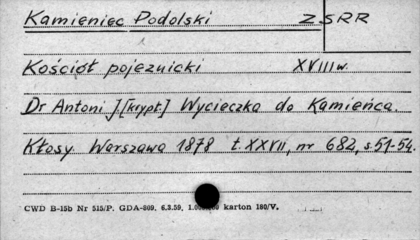 Kamieniec Podolski ZSRR
Kościół pojezuicki XVIII w.
Dr Antoni J [krypt.] Wycieczka do Kamieńca.
Kłosy. Warszawa 1878 t. XXVII, nr 682, s. 51-54.
CWD B-15b Nr 515/P. GDA-809. 6.3.59. karton 180/V.